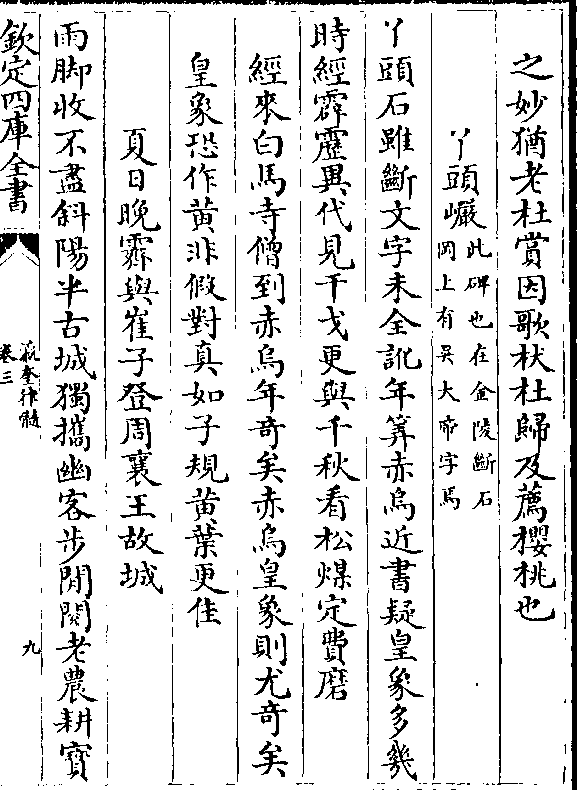 之妙猶老杜賞因歌杕杜歸及薦櫻桃也
丫頭巗
此碑也在金陵斷石
岡上有吳大帝字焉
丫頭石雖斷文字未全訛年筭赤烏近書疑皇象多幾
時經霹靂異代見干戈更與千秋看松煤定費磨
經來白馬寺僧到赤烏年奇矣赤烏皇象則尤奇矣
皇象恐作黄非假對真如子規黄葉更佳
夏日晚霽與崔子登周襄王故城
雨脚收不盡斜陽半古城獨攜幽客步閒閱老農耕寶
欽定四庫全書
瀛奎律髓
卷三
九